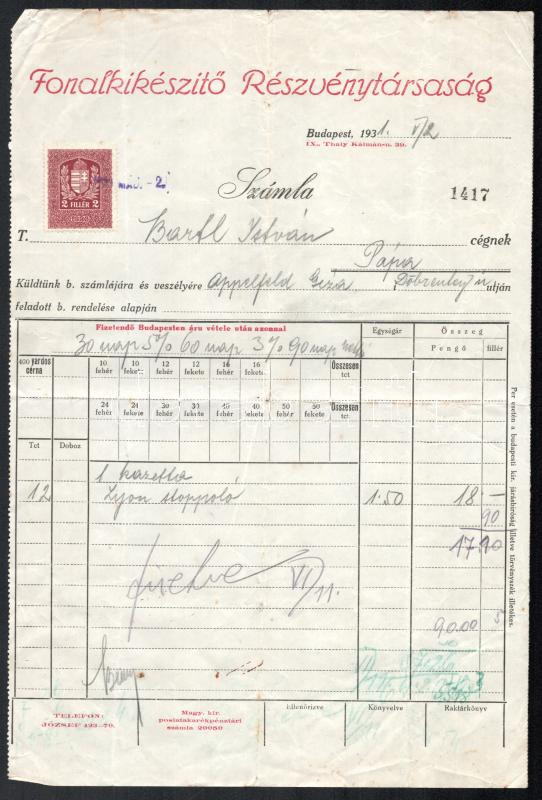 Fonalkikészítő Részvénytársaság
Budapest, 1931. V/2
IX., Thaly Kálmán-u. 39.
2 FILLÉR 2
MÁJ. - 2.
Számla
1417
T. Bartl István cégnek
Pápa
Küldtünk b. számlájára és veszélyére Appelfeld Geza útján
feladott b. rendelése alapján
Fizetendő Budapesten áru vétele után azonnal
Egységár
Összeg
Pengő fillér
30 nap 5% 60 nap 3% 90 nap netto
400 yardos cérna
10 fehér 10 fekete 12 fehér 12 fekete 16 fehér 16 fekete Összesen tct
24 fehér 24 fekete 30 36 40 50 fehér 50 fekete Összesen tct
Tct Doboz
1 kazetta
12 Lyon stoppoló 1·50 18 -
90
17.10
fizetve VI/11.
90.00 5
Per esetén a budapesti kir. járásbíróság illetve törvényszék illetékes.
TELEFON: JÓZSEF 123-70.
Magy. kir. postatakarékpénztári számla 20050
Ellenőrizve
Könyvelve
Raktárkönyv